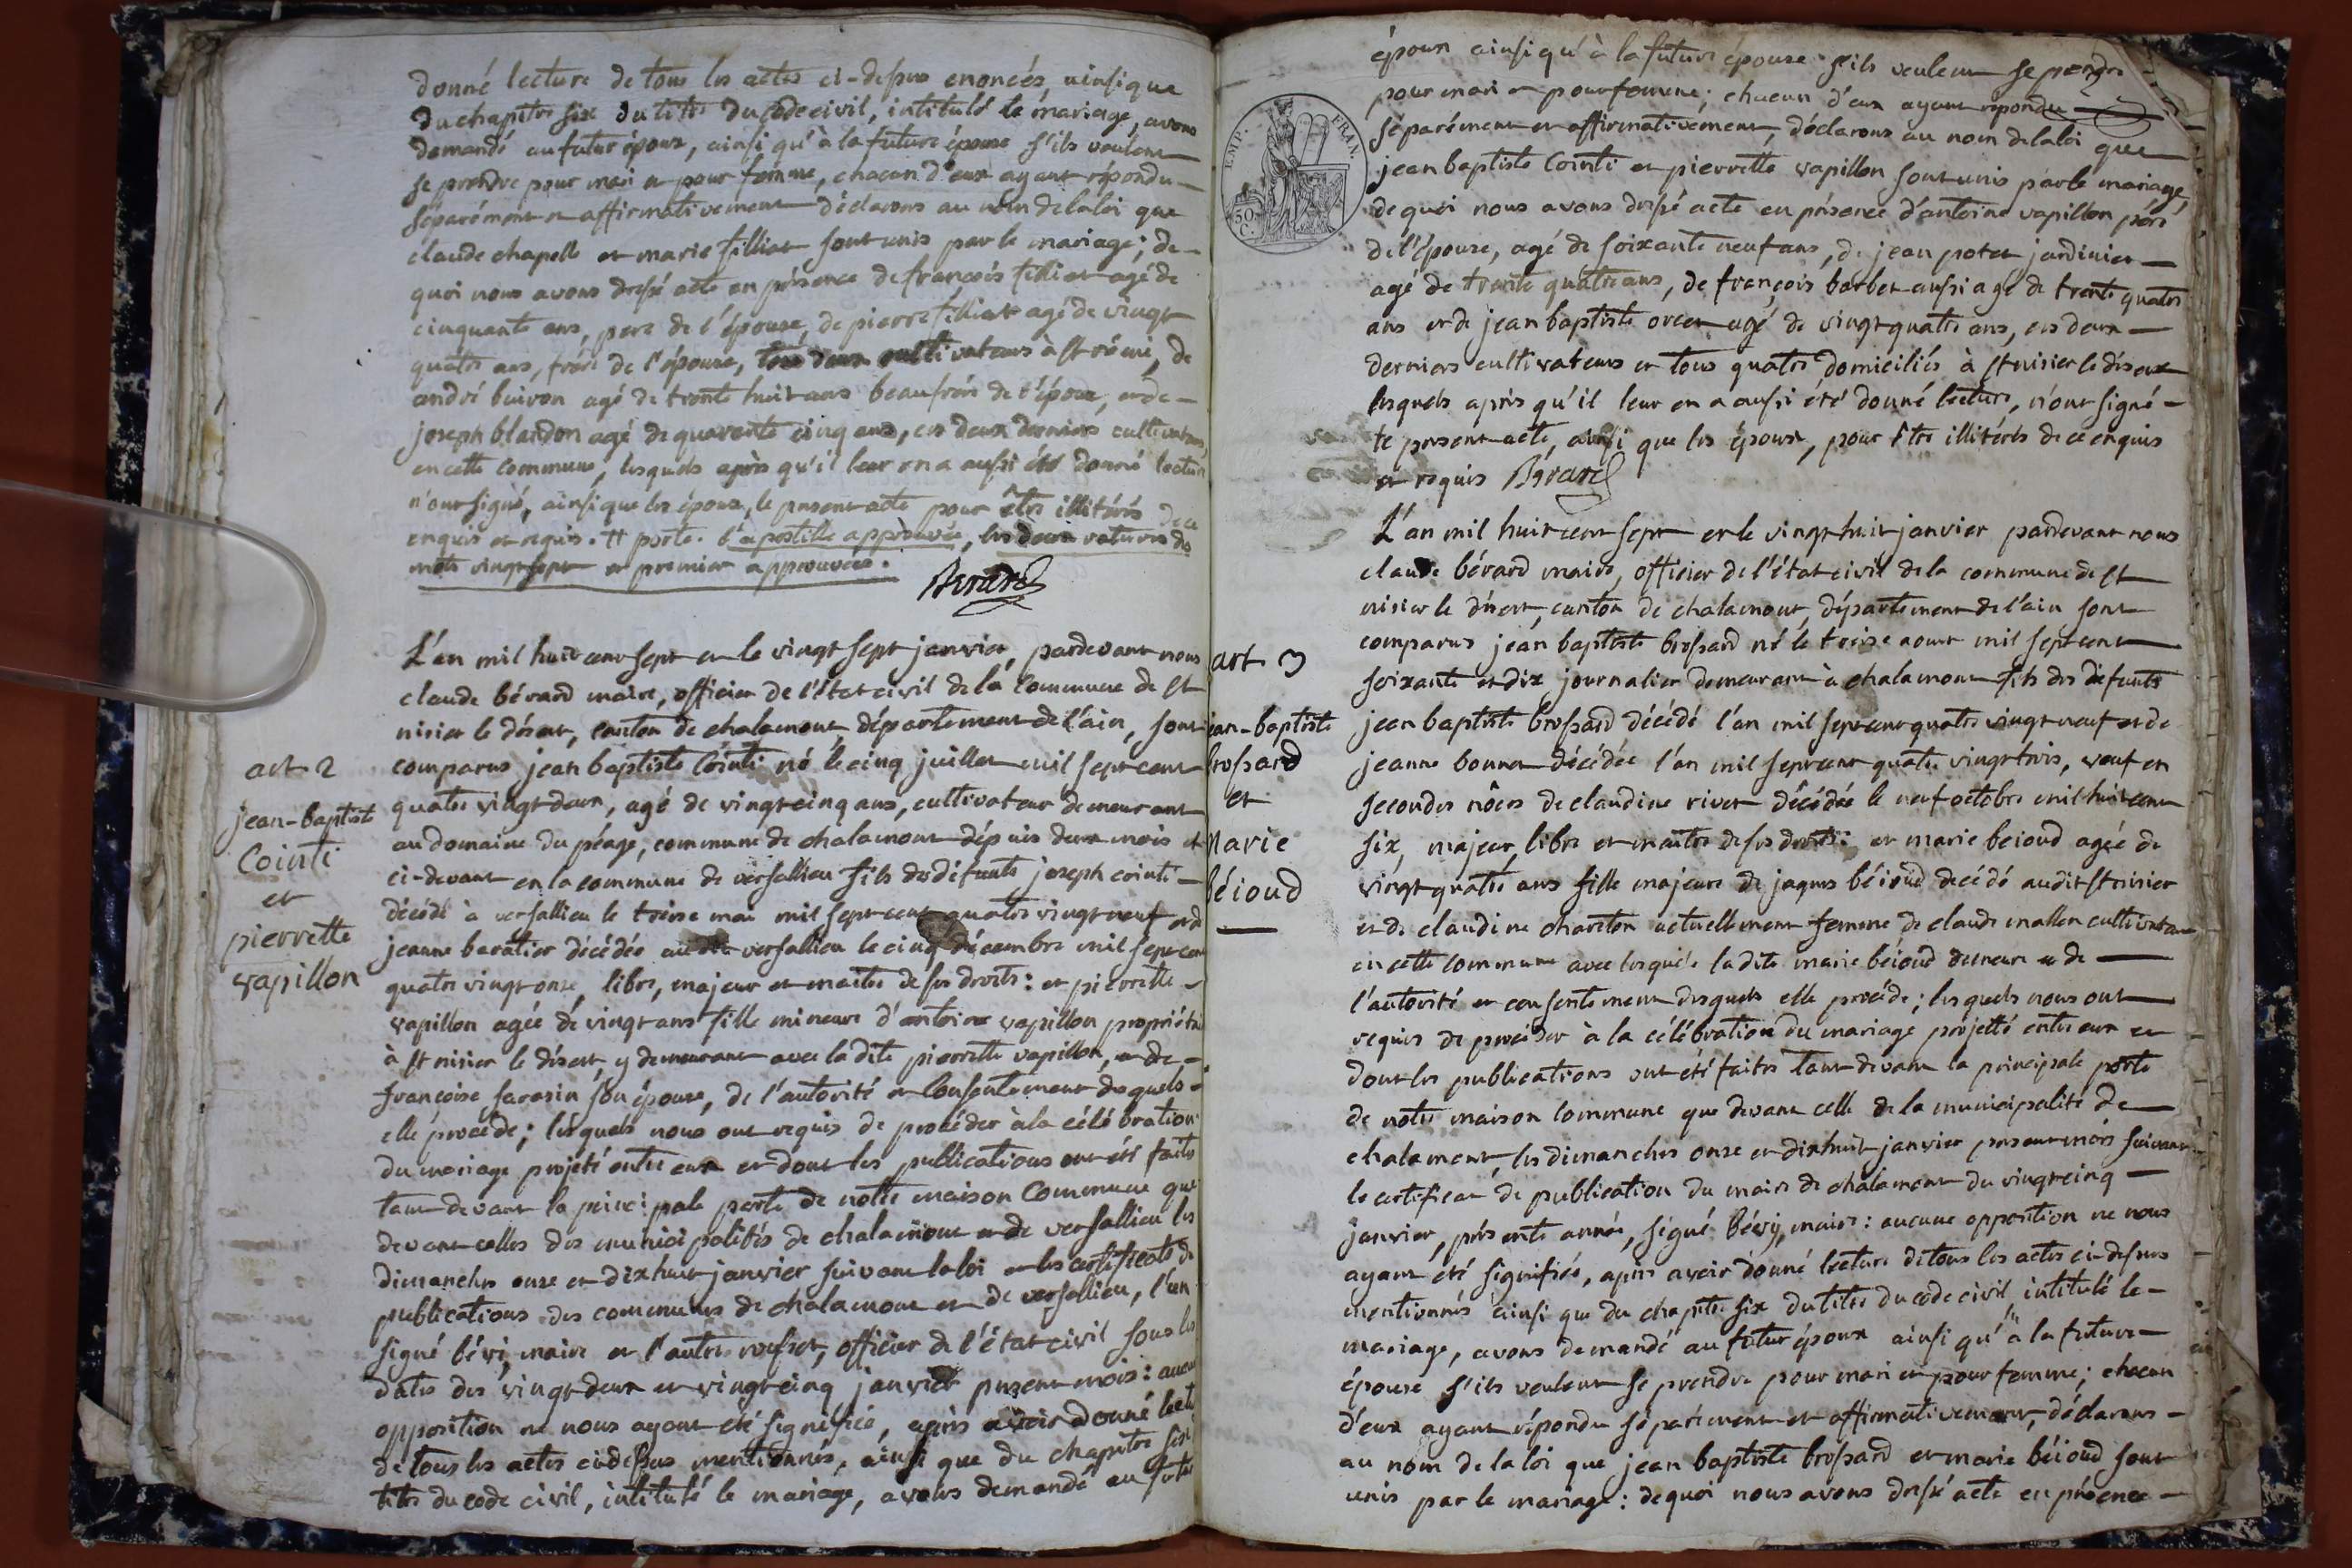 donné lecture de tous les actes ci-dessus enoncés, ainsi que
du chapitre six du titre du code civil, intitulé le mariage, avons
demandé au futur époux, ainsi qu'à la future épouse s'ils veulent
se prendre pour mari et pour femme, chacun d'eux ayant répondu
séparément et affirmativement déclarons au nom de la loi que
claude chapelle et marie filliat sont unis par le mariage; de
quoi nous avons dressé acte en présence de françois filliat agé de
cinquante ans, pere de l'épouse, de pierre filliat agé de vingt
quatre ans, frère de l'épouse, tous deux cultivateurs à st rémi, de
andré buiron agé de trente huit ans beaufrère de l'époux, et de
joseph blandon agé de quarante cinq ans, ces deux derniers cultivateurs
en cette commune, lesquels après qu'il leur en a aussi été donné lecture
n'ont signé, ainsi que les époux, le present acte pour être illitérés de ce
enquis et requis. # porte. l'apostille approuvée, les deux ratures des
mots vingt sept et premier approuvées.
Berard
art 2
jean-baptist
Cointi
et
pierrette
vapillon
L'an mil huit cent sept et le vingt sept janvier, pardevant nous
claude bérard maire, officier de l'état civil de la commune de st
nisier le désert, canton de chalamont, département de l'ain, sont
comparus jean baptiste Cointi né le cinq juillet mil sept cent
quatre vingt deux, agé de vingt cinq ans, cultivateur demeurant
au domaine du péage, commune de chalamont depuis deux mois et
ci-devant en la commune de versallieu fils des défunts joseph cointi
décédé à versallieu le treise mai mil sept cent quatre vingt neuf et d
jeanne baratier décédée au dit versallieu le cinq décembre mil sept cen
quatre vingt onze, libre, majeur et maître de ses droits: et pierrette
vapillon agée de vingt ans fille mineure d'antoine vapillon propriétai
à st nisier le désert, y demeurant avec la dite pierrette vapillon, et de
françoise sarasin son épouse, de l'autorité et consentement desquels
elle procède; lesquels nous ont requis de procéder à la célébration
du mariage projeté entre eux et dont les publications ont été faites
tant devant la principale porte de notre maison commune que
devant celles des municipalités de chalamont et de versallieu les
dimanches onze et dix huit janvier suivant la loi et les certificats de
publications des communes de chalamont et de versallieu, l'un
signé bévi, maire et l'autre officier de l'état civil sous les
dates des vingt deux et vingt cinq janvier present mois: aucu
opposition ne nous ayant été signifiée, après avoir donné lectu
de tous les actes ci dessus mentionnés, ainsi que du chapitre six
titre du code civil, intitulé le mariage, avons demandé au futur
époux ainsi qu'à la future épouse s'ils veulent se prendre
pour mari et pour femme; chacun d'eux ayant répondu
séparément et affirmativement, déclarons au nom de la loi que
jean baptiste Cointi et pierrette vapillon sont unis par le mariage
de quoi nous avons dressé acte en présence d'antoine vapillon père
de l'épouse, agé de soixante neuf ans, de jean potet jardinier
agé de trente quatre ans, de françois barbet aussi agé de trente quatre
ans et de jean baptiste agé de vingt quatre ans, ces deux
derniers cultivateurs et tous quatre domiciliés à st nisier le désert
lesquels après qu'il leur en a aussi été donné lecture, n'ont signé
le present acte, ainsi que les époux, pour être illitérés de ce enquis
et requis Bérard
EMP. FRAN.
50 C.
art 3
jean-baptiste
brossard
et
Marie
béioud
L'an mil huit cent sept et le vingt huit janvier pardevant nous
claude bérard maire, officier de l'état civil de la commune de st
nisier le désert, canton de chalamont, département de l'ain sont
comparus jean baptiste brossard né le treise aout mil sept cent
soixante et dix journalier demeurant à chalamont fils des défunts
jean baptiste brossard décédé l'an mil sept cent quatre vingt neuf et de
jeanne bonnet décédée l'an mil sept cent quatre vingt trois, veuf en
secondes nôces de claudine rivet décédée le neuf octobre mil huit cent
six, majeur, libre et maître de ses droits: et marie beioud agée de
vingt quatre ans fille majeure de jaques béioud décédé audit st nisier
et de claudine chareton actuellement femme de claude mallen cultivateur
en cette commune avec lesquels la dite marie béioud demeure et de
l'autorité et consentement desquels elle procède; lesquels nous ont
requis de procéder à la célébration du mariage projetté entre eux et
dont les publications ont été faites tant devant la principale porte
de notre maison commune que devant celle de la municipalité de
chalamont, les dimanches onze et dix huit janvier present mois suivant
le certificat de publication du maire de chalamont du vingt cinq
janvier, présente année, signé bévy, maire: aucune opposition ne nous
ayant été signifiée, après avoir donné lecture de tous les actes ci-dessus
mentionnés ainsi que du chapitre six du titre du code civil intitulé le
mariage, avons demandé au futur époux ainsi qu'à la future
épouse s'ils veulent se prendre pour mari et pour femme; chacun
d'eux ayant répondu séparément et affirmativement, déclarons
au nom de la loi que jean baptiste brossard et marie béioud sont
unis par le mariage: de quoi nous avons dressé acte en présence